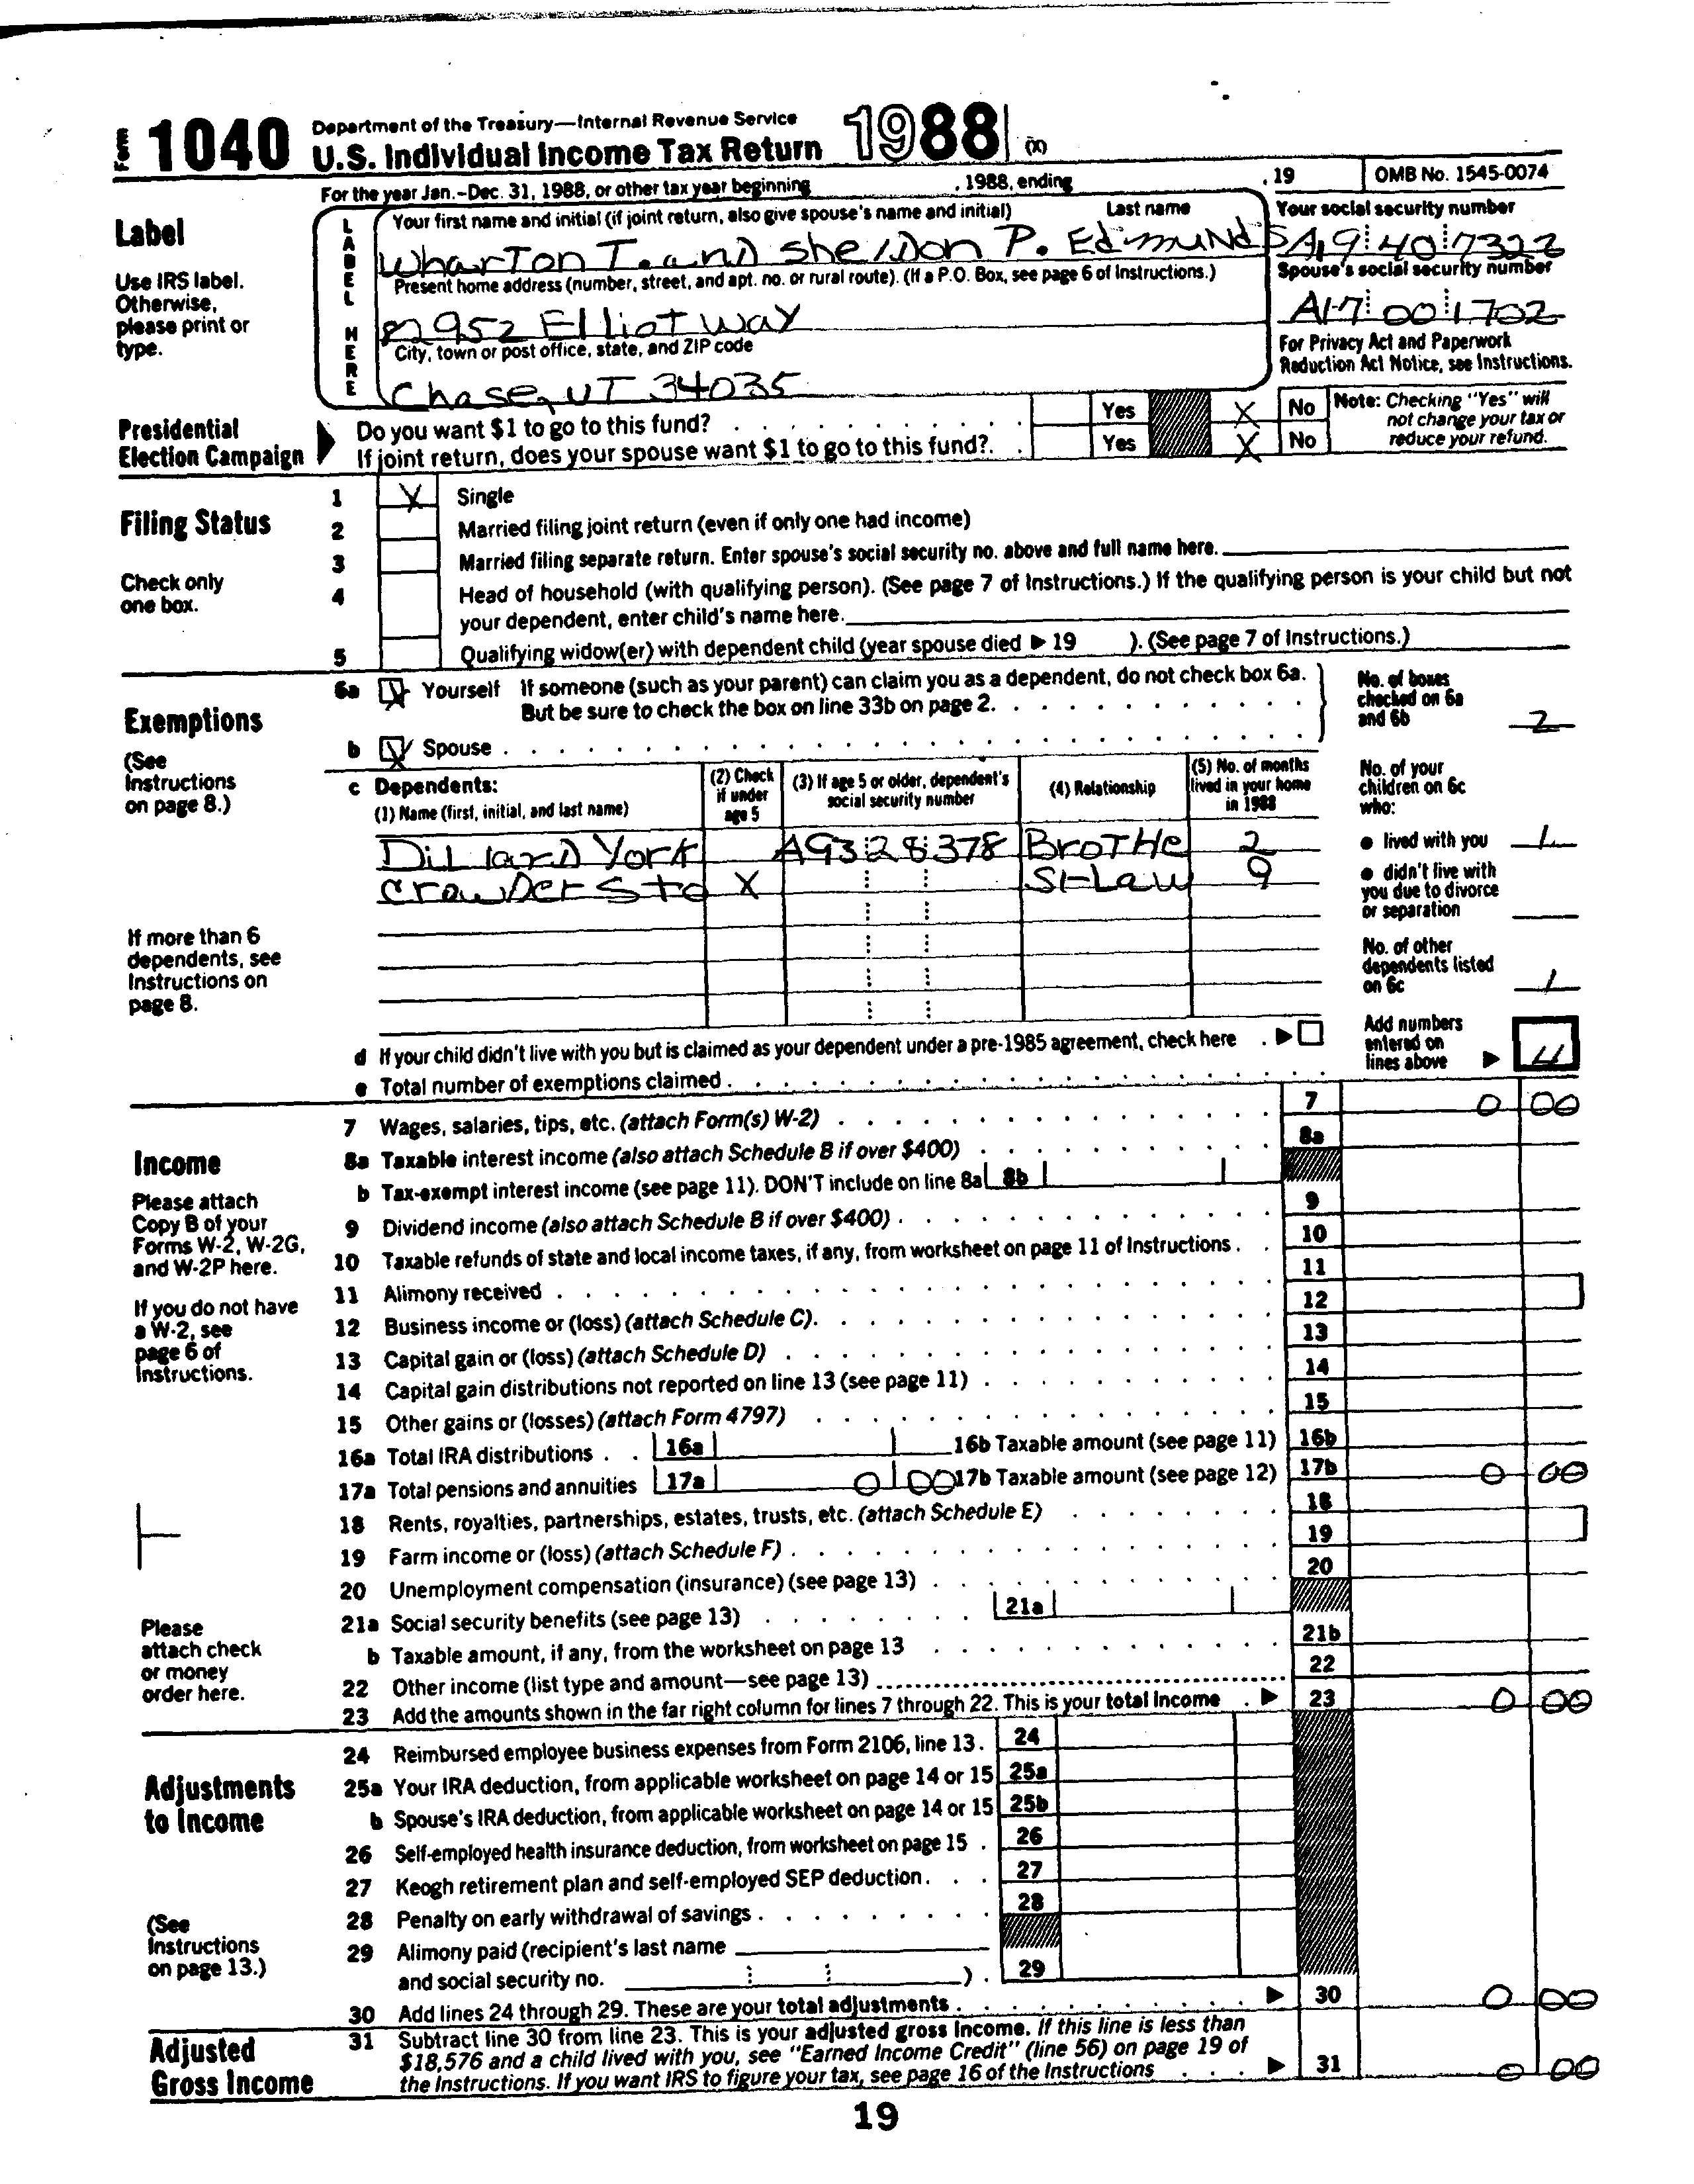 Form 1040 Department of the Treasury—Internal Revenue Service
U.S. Individual Income Tax Return 1988 (X)
For the year Jan.–Dec. 31, 1988, or other tax year beginning , 1988, ending , 19 OMB No. 1545-0074
Label
Use IRS label.
Otherwise,
please print or
type.
LABEL HERE
Your first name and initial (if joint return, also give spouse's name and initial) Last name
Wharton T. and Sheldon P. Edmunds
Your social security number
A19 40 7322
Present home address (number, street, and apt. no. or rural route). (If a P.O. Box, see page 6 of Instructions.)
82952 Elliot Way
Spouse's social security number
A17 00 1702
City, town or post office, state, and ZIP code
Chase, UT 34035
For Privacy Act and Paperwork
Reduction Act Notice, see Instructions.
Presidential
Election Campaign
Do you want $1 to go to this fund? Yes X No
If joint return, does your spouse want $1 to go to this fund? Yes X No
Note: Checking "Yes" will
not change your tax or
reduce your refund.
Filing Status
Check only
one box.
1 X Single
2 Married filing joint return (even if only one had income)
3 Married filing separate return. Enter spouse's social security no. above and full name here.
4 Head of household (with qualifying person). (See page 7 of Instructions.) If the qualifying person is your child but not
your dependent, enter child's name here.
5 Qualifying widow(er) with dependent child (year spouse died ▶ 19 ). (See page 7 of Instructions.)
Exemptions
(See
Instructions
on page 8.)
6a X Yourself If someone (such as your parent) can claim you as a dependent, do not check box 6a.
But be sure to check the box on line 33b on page 2.
b X Spouse
No. of boxes
checked on 6a
and 6b 2
c Dependents:
(1) Name (first, initial, and last name)
(2) Check
if under
age 5
(3) If age 5 or older, dependent's
social security number
(4) Relationship
(5) No. of months
lived in your home
in 1988
Dillard York A93 28 378 Brothe 2
Crowder Sto X SI-Law 9
If more than 6
dependents, see
Instructions on
page 8.
No. of your
children on 6c
who:
● lived with you 1
● didn't live with
you due to divorce
or separation
No. of other
dependents listed
on 6c 1
d If your child didn't live with you but is claimed as your dependent under a pre-1985 agreement, check here ▶
e Total number of exemptions claimed
Add numbers
entered on
lines above ▶ 4
Income
Please attach
Copy B of your
Forms W-2, W-2G,
and W-2P here.
If you do not have
a W-2, see
page 6 of
Instructions.
Please
attach check
or money
order here.
7 Wages, salaries, tips, etc. (attach Form(s) W-2) 7 0 00
8a Taxable interest income (also attach Schedule B if over $400) 8a
b Tax-exempt interest income (see page 11). DON'T include on line 8a 8b
9 Dividend income (also attach Schedule B if over $400) 9
10 Taxable refunds of state and local income taxes, if any, from worksheet on page 11 of Instructions 10
11 Alimony received 11
12 Business income or (loss) (attach Schedule C) 12
13 Capital gain or (loss) (attach Schedule D) 13
14 Capital gain distributions not reported on line 13 (see page 11) 14
15 Other gains or (losses) (attach Form 4797) 15
16a Total IRA distributions 16a 16b Taxable amount (see page 11) 16b
17a Total pensions and annuities 17a 0 00 17b Taxable amount (see page 12) 17b 0 00
18 Rents, royalties, partnerships, estates, trusts, etc. (attach Schedule E) 18
19 Farm income or (loss) (attach Schedule F) 19
20 Unemployment compensation (insurance) (see page 13) 20
21a Social security benefits (see page 13) 21a
b Taxable amount, if any, from the worksheet on page 13 21b
22 Other income (list type and amount—see page 13) 22
23 Add the amounts shown in the far right column for lines 7 through 22. This is your total income ▶ 23 0 00
Adjustments
to Income
(See
Instructions
on page 13.)
24 Reimbursed employee business expenses from Form 2106, line 13. 24
25a Your IRA deduction, from applicable worksheet on page 14 or 15 25a
b Spouse's IRA deduction, from applicable worksheet on page 14 or 15 25b
26 Self-employed health insurance deduction, from worksheet on page 15 26
27 Keogh retirement plan and self-employed SEP deduction 27
28 Penalty on early withdrawal of savings 28
29 Alimony paid (recipient's last name
and social security no. ) 29
30 Add lines 24 through 29. These are your total adjustments ▶ 30 0 00
Adjusted
Gross Income
31 Subtract line 30 from line 23. This is your adjusted gross income. If this line is less than
$18,576 and a child lived with you, see "Earned Income Credit" (line 56) on page 19 of
the Instructions. If you want IRS to figure your tax, see page 16 of the Instructions ▶ 31 0 00
19